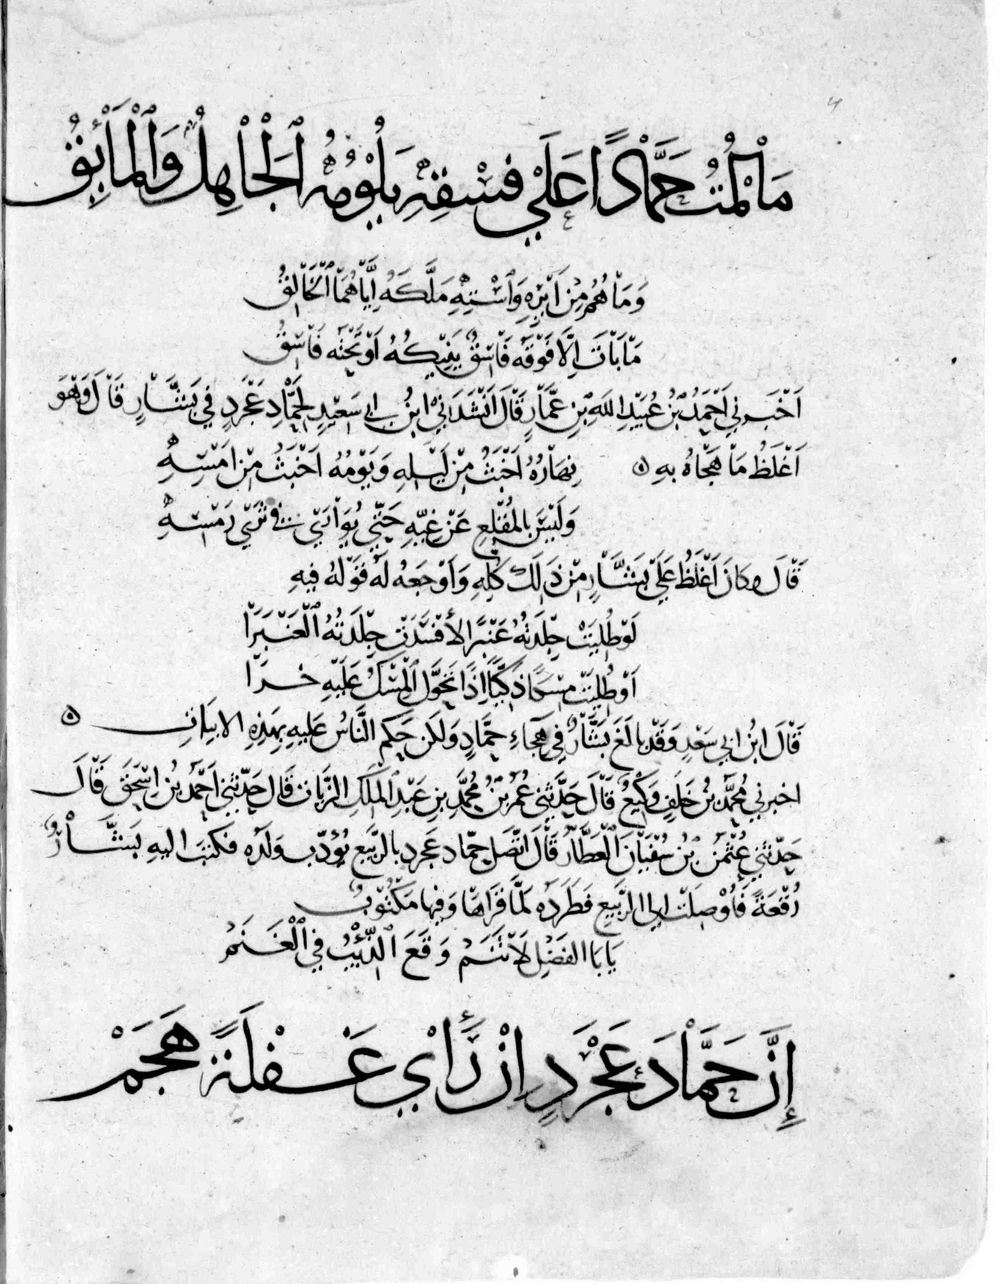 مَا لُمْتُ حَمَّادًا عَلَي فِسْقِهِ يَلُوْمُهُ الجَاهِلُ وَالْمَائِقُ
وَمَا هُمُ مِنْ اَيْرِهِ وَاسْتِهِ مَلَّكَهُ اِيَّاهُمَا الخَالِقُ
مَا بَاتَ اِلَّا فَوْقَهُ فَاسِقٌ يَنِيكُهُ اَوْ تَحْتَهُ فَاسِقُ
اَخْبَرني اَحْمَدُ بْنُ عُبَيْدِ اللهِ بْنِ عَمَّارٍ قَالَ اَنْشَدَني ابنُ ابي سَعِيدٍ لِحَمَّادِ عَجْرَدٍ في بَشَّارٍ قَالَ وَهْوَ
اَغْلَظُ مَا هَجَاهُ بِهِ ۞ نَهَارُهُ اَخْبَثُ مِنْ لَيْلِهِ وَيَوْمُهُ اَخْبَثُ مِنْ اَمْسِهِ
وَلَيْسَ بِالمُقْلِعِ عَنْ غَيِّهِ حَتَّي يُوَارَي في ثَرَي رَمْسِهِ
قَالَ وكانَ اَغْلَظُ عَلَي بَشَّارٍ مِنْ ذَلِكَ كُلِّهِ وَاَوْجَعُهُ لَهُ قَوْلُهُ فِيهِ
لَوْ طُلِيَتْ جِلْدَتُهُ عَنْبَرًا لأَفْسَدَتْ جِلْدَتُهُ الْعَنْبَرَا
اَوْ طُلِيَتْ مِسْكًا ذَكِيًّا اِذًا تَحَوَّلَ المِسْكُ عَلَيْهِ خَرَا
قَالَ ابنُ ابي سَعْدٍ وَقَدْ بَالَغَ بَشَّارٌ فِي هِجَاءِ حَمَّادٍ وَلَكن حَكَمَ النَّاسُ عَلَيهِ بِهَذِهِ الابيَاتِ ۞
اخبرني مُحَمَّدُ بنُ خَلَفٍ وَكِيعٌ قَالَ حَدَّثَني عُمَرُ بنُ مُحَمَّدِ بنِ عَبْدِ المَلِكِ الزَّيَّات قَالَ حَدَّثَني اَحْمَدُ بنُ اِسْحَقَ قَالَ
حَدَّثَني عُثْمَنُ بْنُ سُفْيَانَ الْعَطَّارُ قَالَ اتَّصَلَ حَمَّاد عَجْرَدٍ بِالرَّبِيعِ يُؤَدِّبُ وَلَدَهُ فكَتبَ اليهِ بَشَّارٌ
رُقْعَةً فَاُوْصِلَتْ الي الرَّبِيعِ فَطَرَدَهُ لَمَّا قَرَاهَا وَفِيهَا مَكْتُوبٌ
يَابَا الفَضْلِ لَا تَنَمْ وَقَعَ الذِّئْبُ فِي الْغَنَمْ
اِنَّ حَمَّادَ عَجْرَدٍ اِنْ رَأَي غَفْلَةً هَجَمْ